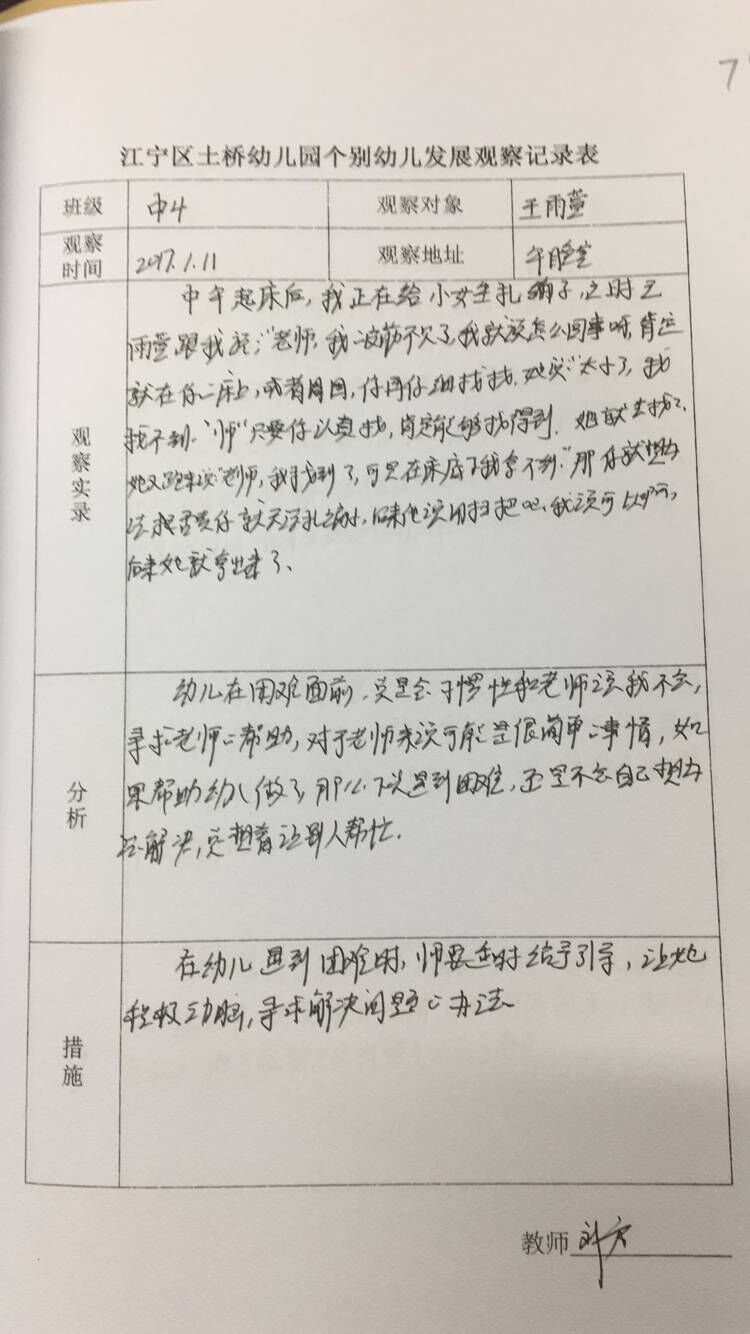 7
江宁区土桥幼儿园个别幼儿发展观察记录表
班级 中4 观察对象 王雨萱
观察时间 2017.1.11 观察地址 午睡室
观察实录
中午起床后,我正在给小女生扎辫子,这时王
雨萱跟我说:“老师,我皮筋不见了,我就说怎么回事呀,肯定
就在你床上,或者周围,你再仔细找找,她说:“太小了,我
找不到.”师“只要你认真找,肯定能够找得到.她就去找了.
她又跑来说“老师,我找到了,可是在床底下我拿不到.”那你就想办
法,后来他说用扫把吧,我说可以啊,
后来她就拿出来了、
分析
幼儿在困难面前,总是会习惯性和老师说我不会,
寻求老师的帮助,对于老师来说可能是很简单的事情,如
果帮助幼儿做了,那么下次遇到困难,还是不会自己想办
法解决,总想着让别人帮忙.
措施
在幼儿遇到困难时,师要适时给予引导,让她
积极动脑,寻求解决问题的办法
教师